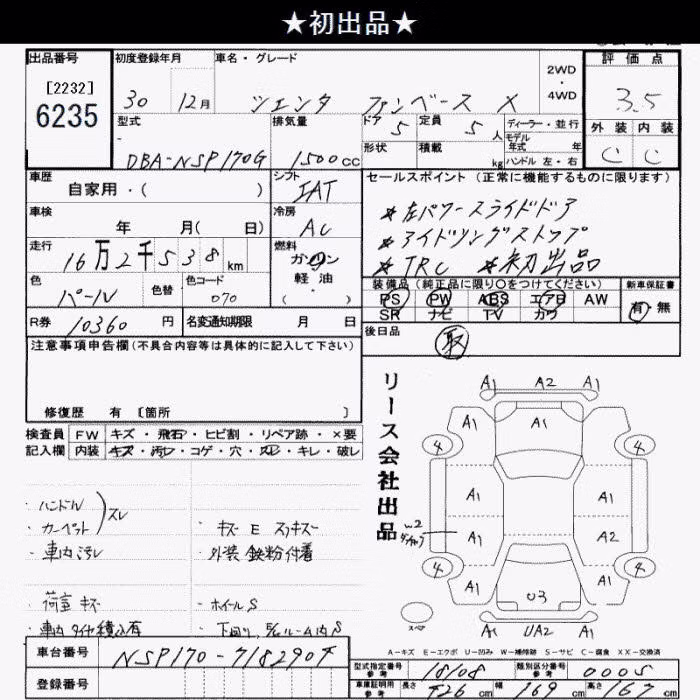 ★初出品★
出品番号
[2232]
6235
初度登録年月
30 12月
車名・グレード
シエンタ ファンベース X
2WD
・
4WD
評価点
3.5
外装 内装
C C
型式
DBA-NSP170G
排気量
1500cc
ドア 5
定員 5人
ディーラー・並行
モデル
年式 年
形状
積載 kg
ハンドル 左・右
車歴
自家用・( )
シフト
IAT
セールスポイント (正常に機能するものに限ります)
*左パワースライドドア
*アイドリングストップ
*TRC *初出品
車検
年 月( 日)
冷房
AC
走行
16万2千538km
燃料
ガソリン
軽油
( )
色
パール
色替
色コード
070
装備品 (純正品に限り○をつけてください)
PS PW ABS エアB AW
SR ナビ TV カワ
新車保証書
有・無
R券 10360 円
名変通知期限 月 日
後日品
取
注意事項申告欄(不具合内容等は具体的に記入して下さい)
修復歴 有 [箇所 ]
検査員
記入欄
FW キズ・飛石・ヒビ割・リペア跡・×要
内装 キズ・汚レ・コゲ・穴・スレ・キレ・破レ
・ハンドル
・カーペット
スレ
・車内汚レ
・キズ E スリキズ
・外装 鉄粉付着
・荷室 キズ
・ホイールS
・車内 タイヤ積込有
リース会社出品
A1 A2 A1
A1
4 4
A1 A1
W2
A1 A2
4 4
A1 A1
U3
スペア
A1 UA2 A1
A-キズ E-エクボ U-凹み W-補修跡 S-サビ C-腐食 XX-交換済
車台番号
登録番号
型式指定番号
参考
18108
類別区分番号
参考
0005
車庫証明用
参考
長さ 426 cm
幅 169 cm
高さ 167 cm